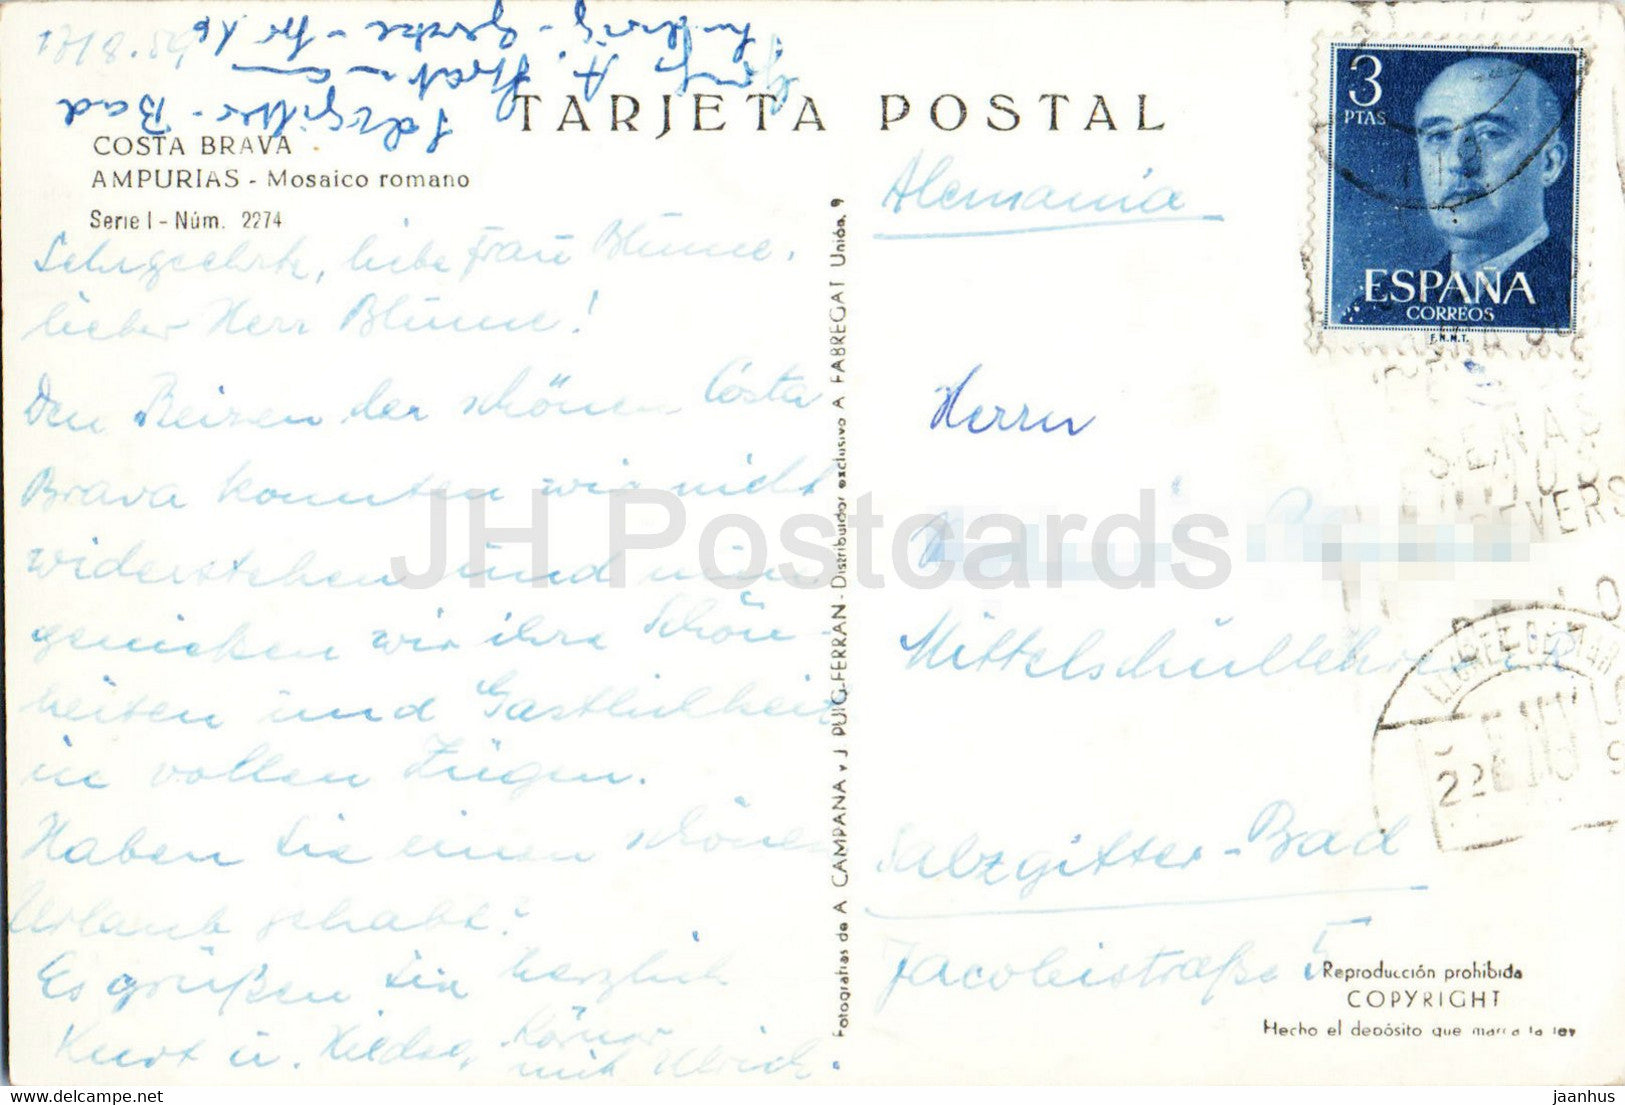 17/8.59
TARJETA POSTAL
COSTA BRAVA
AMPURIAS - Mosaico romano
Serie I - Núm. 2274
Sehrgeehrte, liebe Frau Blume,
lieber Herr Blume!
Den Reizen der schönen Costa
Brava konnten wir nicht
widerstehen und nun
genießen wir ihre Schön-
heiten und Gastlichkeit
in vollen Zügen.
Haben Sie einen schönen
Urlaub gehabt?
Es grüßen Sie herzlich
Kurt u. Hildeg. Körner
mit Ulrich.
Salzgitter-Bad
Fotografias de A CAMPANA y J PUIG FERRAN - Distribuidor exclusivo A FABREGAT Unión, 9
Alemania
3
PTAS
ESPAÑA
CORREOS
F.N.M.T.
Herrn
Mittelschullehrer
Salzgitter-Bad
Jacobistraße 5
SENAS
LLORET DE MAR
Reproducción prohibida
COPYRIGHT
Hecho el depósito que marca la ley
JH Postcards
jaanhus © www.delcampe.net